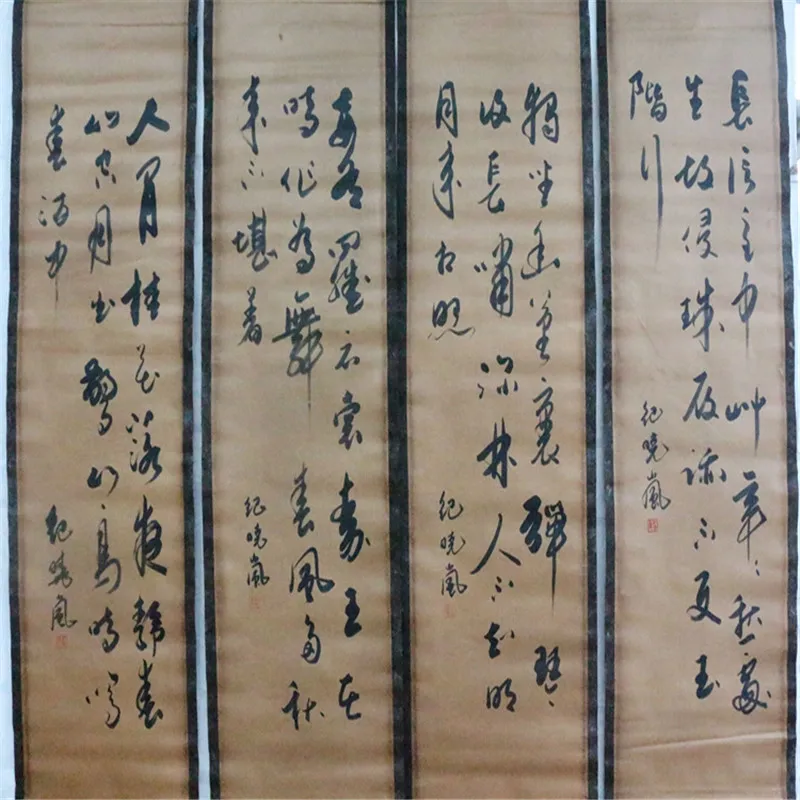 長信宮中艸年〻愁處
生故侵珠履跡不使玉
階行
紀曉嵐
獨坐幽篁裏彈琴
復長嘯深林人不知明
月來相照
紀曉嵐
妾有羅衣裳秦王在
時作為舞春風多秋
來不堪著
紀曉嵐
人閒桂花落夜靜春
山空月出驚山鳥時鳴
春澗中
紀曉嵐